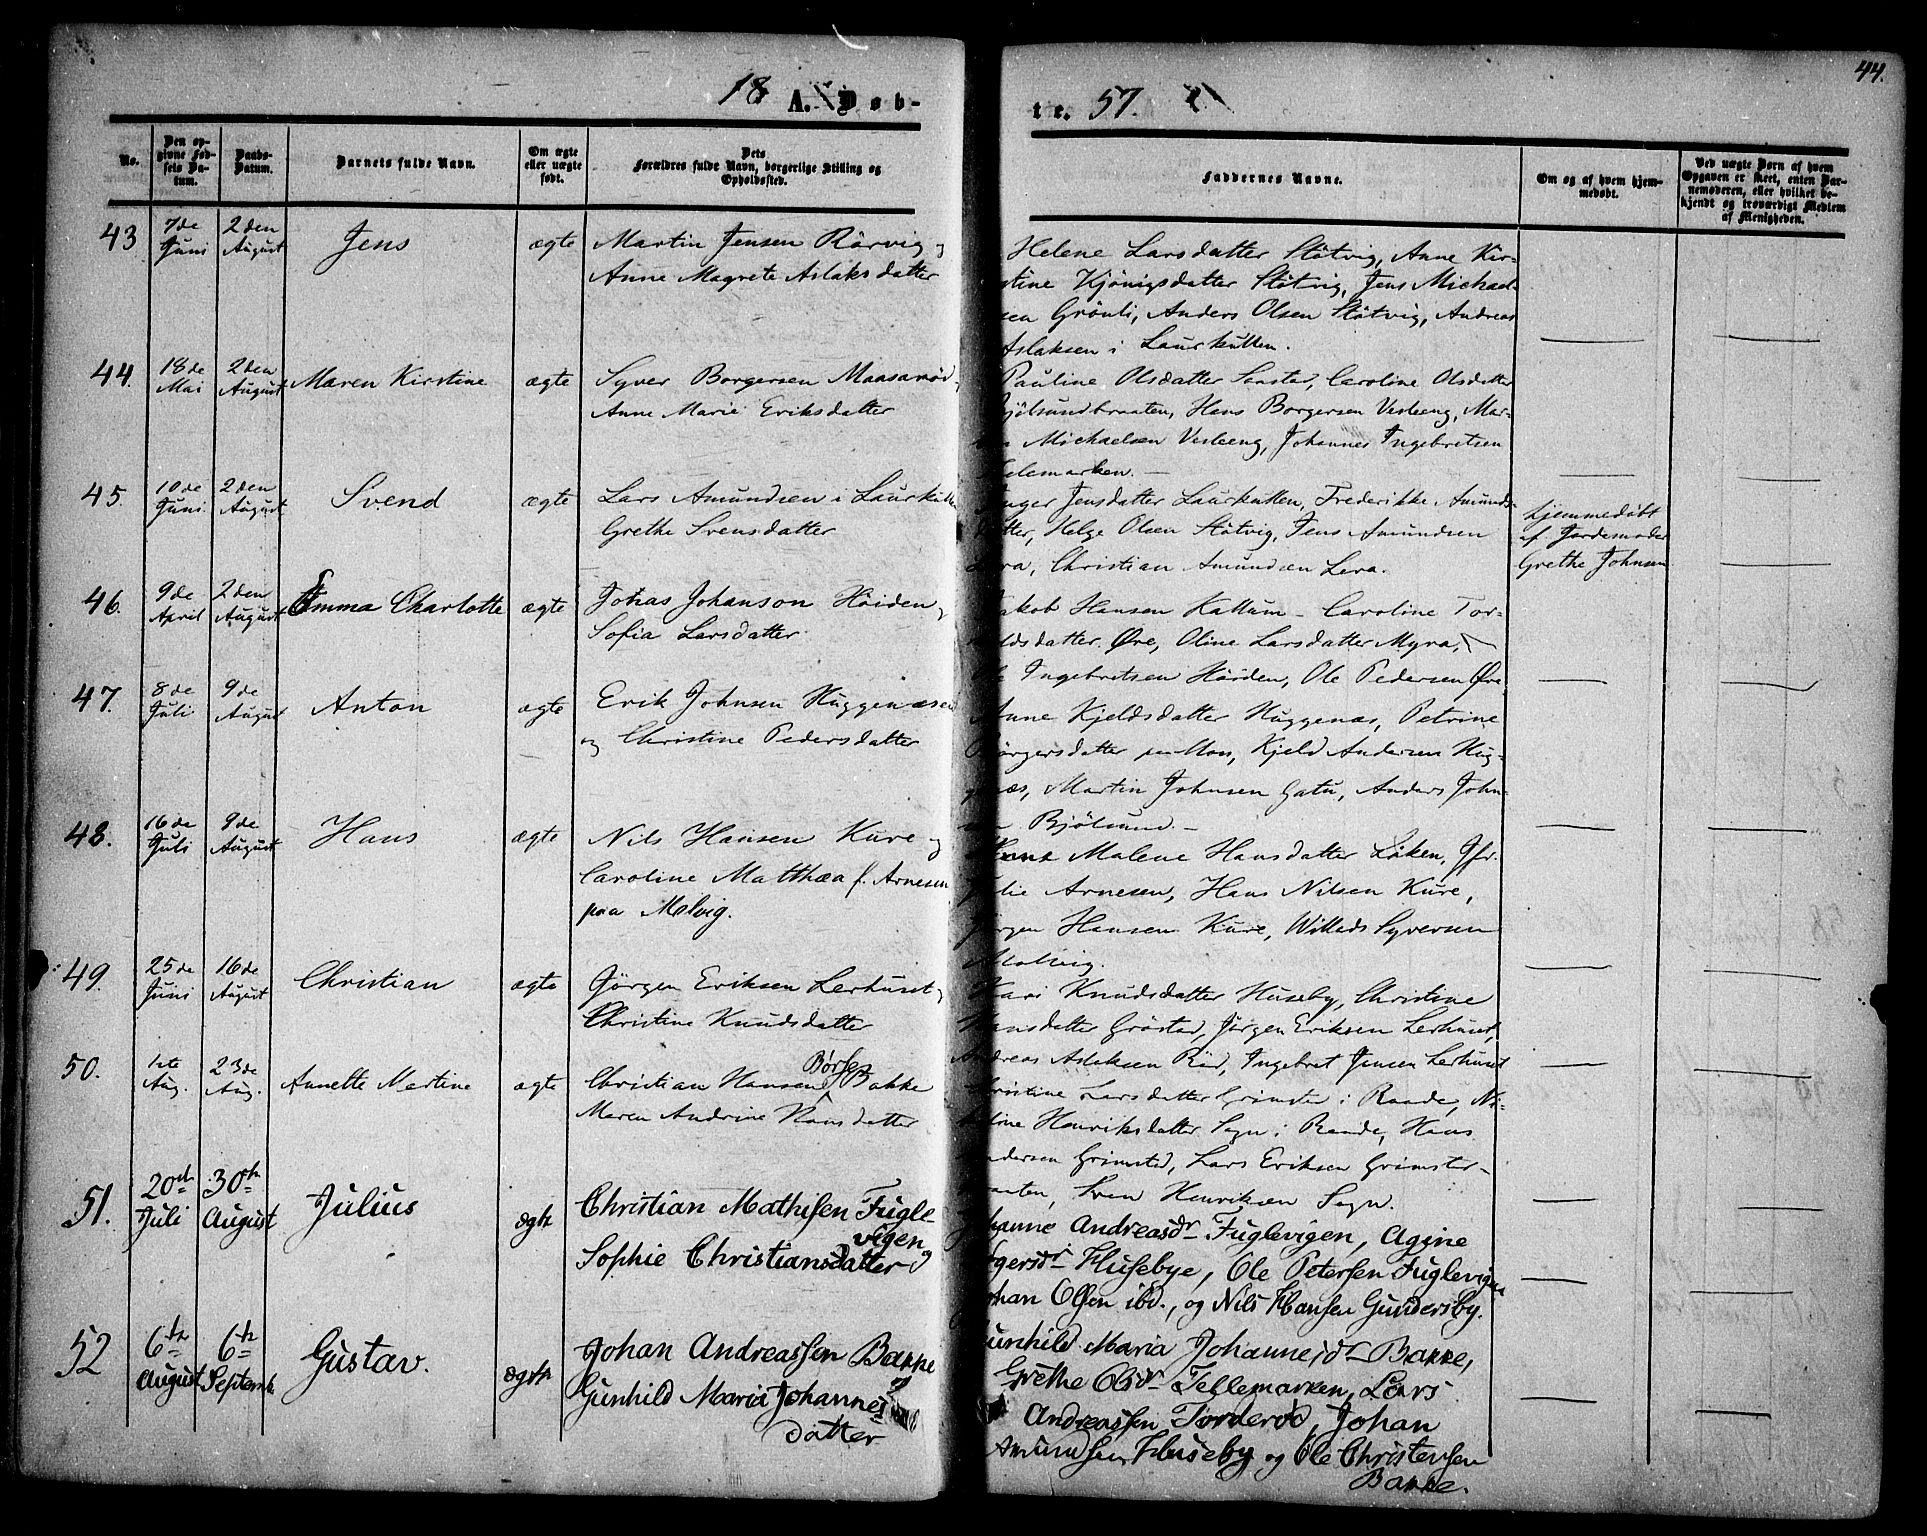 44.
18 A. Døb-
te. 57.
No.
Den op-
givne Fød-
sels Da-
tum.
Daabs-
Datum.
Barnets fulde Navn.
Om ægte
eller uægte
født.
Dets
Forældres fulde Navn, borgerlige Stilling og
Opholdssted.
Faddernes Navne.
Om og af hvem hjem-
medøbt.
Ved uægte Børn af hvem
Opgaven er skeet, enten Bar-
nemoderen, eller hvilket be-
kjendt og troværdigt Medlem
af Menigheden.
43 7de Juni 2den August Jens ægte Martin Jensen Rörvig og
Anne Magrete Aslaksdatter
Helene Larsdatter Stötvig, Anne Kir-
stine Kjönigsdatter Stötvig, Jens Michael-
sen Grönli, Anders Olsen Stötvig, Andreas
Aslaksen i Laurkullen.
44. 18de Mai 2den August Maren Kirstine ægte Syver Borgersen
Anne Marie Eriksdatter
Pauline Olsdatter Caroline Olsdatter
Hans Borgersen Vesleeng, Mar-
Michaelsen Vesleeng, Johannes Ingebretsen
Telemarken.
45. 10de Juni 2den August Svend ægte Lars Amundsen i Laurkullen
Grethe Svensdatter
Inger Jensdatter Laurkullen, Frederikke Amunds-
datter, Helge Olsen Stötvig, Jens Amundsen
Lera, Christian Amundsen Lera.
hjemmedöbt
af Jordemoder
Grethe Johnsen
46. 9de April 2den August Emma Charlotte ægte Johanson Höiden og
Sofia Larsdatter
Jakob Hansen Kallum - Caroline Tor-
kildsdatter Øre, Oline Larsdatter Myra,
Ole Ingebretsen Höiden, Ole Pedersen Øre.
47. 8de Juli 9de August Anton ægte Erik Johnsen Huggenæsen
og Christine Pedersdatter
Anne Kjeldsdatter Huggenæs, Petrine
Börgersdatter Kjeld Andersen Hug-
genæs, Martin Johnsen Gatu, Anders John-
sen Bjölsund.
48. 16de Juli 9de August Hans ægte Nils Hansen Kure og
Caroline Matthea f. Arnesen
paa Melvig.
Malene Hansdatter Löken, Jfr.
Julie Arnesen, Hans Nilsen Kure,
Jörgen Hansen Kure, Willads Syversen
Melvig.
49. 25de Juni 16de August Christian ægte Jörgen Eriksen Lerhuset og
Christine Knudsdatter
Kari Knudsdatter Huseby, Christine
Hansdatter Jörgen Eriksen Lerhuset,
Andreas Aslaksen Röd, Ingebret Jensen Lerhuset
50. 1ste Aug. 23de Aug. Annette Martine ægte Christian Hansen Börse Bakke
Maren Andrine Hansdatter
Christine Larsdatter Grimsted i Raade,
Henriksdatter Sogn i Raade, Hans
Andersen Grimsted, Lars Eriksen Grimster-
braaten, Sven Henriksen Sogn.
51. 20de Juli 30te August Julius ægte Christian Mathisen Fugle-
vigen og
Sophie Christiansdatter
Johanne Andreasdr Fuglevigen, Agine
Husebye, Ole Petersen Fuglevigen
Johan Olsen ibd., og Nils Hansen Gundersby.
52 6te August 6te Septemb. Gustav. ægte Johan Andreassen Bakke
Gunhild Maria Johannes
datter
Gunhild Maria Johannesdr Bakke,
Grethe Olsdr Tellemarken, Lars
Andreassen Torderød, Johan
Amundsen Huseby og Ole Christensen
Bakke.